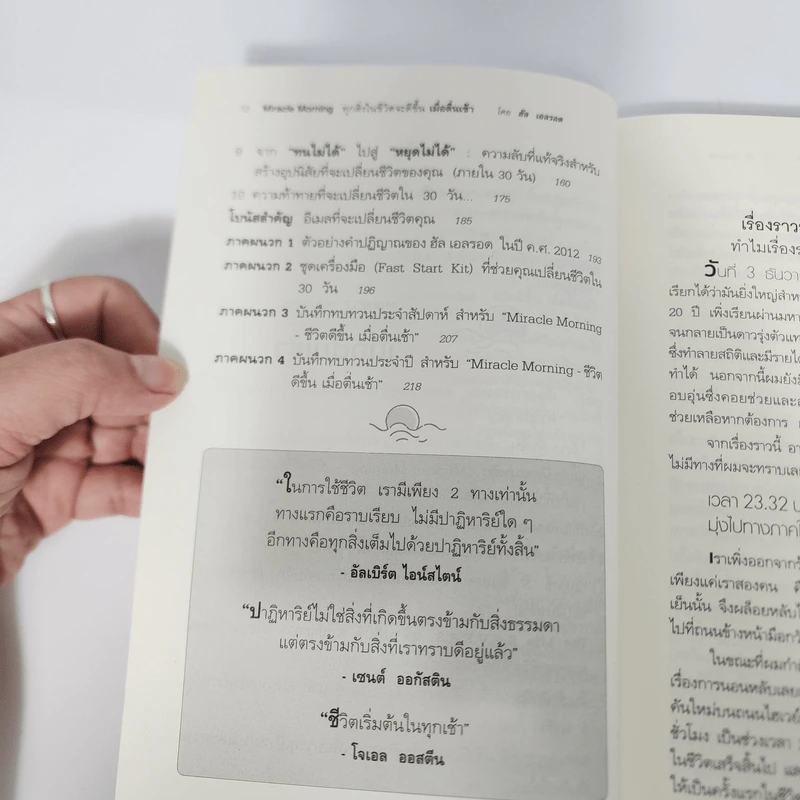 Miracle Morning ทุกสิ่งในชีวิตจะดีขึ้น เมื่อตื่นเช้า โดย ฮัล เอลรอด
9 จาก “ทนไม่ได้” ไปสู่ “หยุดไม่ได้” : ความลับที่แท้จริงสำหรับ
สร้างอุปนิสัยที่จะเปลี่ยนชีวิตของคุณ (ภายใน 30 วัน) 160
10 ความท้าทายที่จะเปลี่ยนชีวิตใน 30 วัน... 175
โบนัสสำคัญ อีเมลที่จะเปลี่ยนชีวิตคุณ 185
ภาคผนวก 1 ตัวอย่างคำปฏิญาณของ ฮัล เอลรอด ในปี ค.ศ. 2012 193
ภาคผนวก 2 ชุดเครื่องมือ (Fast Start Kit) ที่ช่วยคุณเปลี่ยนชีวิตใน
30 วัน 196
ภาคผนวก 3 บันทึกทบทวนประจำสัปดาห์ สำหรับ “Miracle Morning
- ชีวิตดีขึ้น เมื่อตื่นเช้า” 207
ภาคผนวก 4 บันทึกทบทวนประจำปี สำหรับ “Miracle Morning - ชีวิต
ดีขึ้น เมื่อตื่นเช้า” 218
“ในการใช้ชีวิต เรามีเพียง 2 ทางเท่านั้น
ทางแรกคือราบเรียบ ไม่มีปาฏิหาริย์ใด ๆ
อีกทางคือทุกสิ่งเต็มไปด้วยปาฏิหาริย์ทั้งสิ้น”
- อัลเบิร์ต ไอน์สไตน์
“ปาฏิหาริย์ไม่ใช่สิ่งที่เกิดขึ้นตรงข้ามกับสิ่งธรรมดา
แต่ตรงข้ามกับสิ่งที่เราทราบดีอยู่แล้ว”
- เซนต์ ออกัสติน
“ชีวิตเริ่มต้นในทุกเช้า”
- โจเอล ออสตีน
เรื่องราว
ทำไมเรื่อง
วันที่ 3 ธันวา
เรียกได้ว่ามันยิ่งใหญ่สำห
20 ปี เพิ่งเรียนผ่านมหา
จนกลายเป็นดาวรุ่งตัวแท
ซึ่งทำลายสถิติและมีรายได้
ทำได้ นอกจากนี้ผมยังมี
อบอุ่นซึ่งคอยช่วยและส
ช่วยเหลือหากต้องการ
จากเรื่องราวนี้ อา
ไม่มีทางที่ผมจะทราบเลย
เวลา 23.32 น
มุ่งไปทางภาคใ
เราเพิ่งออกจากวั
เพียงแค่เราสองคน
เย็นนั้น จึงผล็อยหลับไ
ไปที่ถนนข้างหน้ามือกว
ในขณะที่ผมกำ
เรื่องการนอนหลับเลย
คันใหม่บนถนนไฮเวย์
ชั่วโมง เป็นช่วงเวลา
ในชีวิตเสร็จสิ้นไป และ
ให้เป็นครั้งแรกในชีวิต